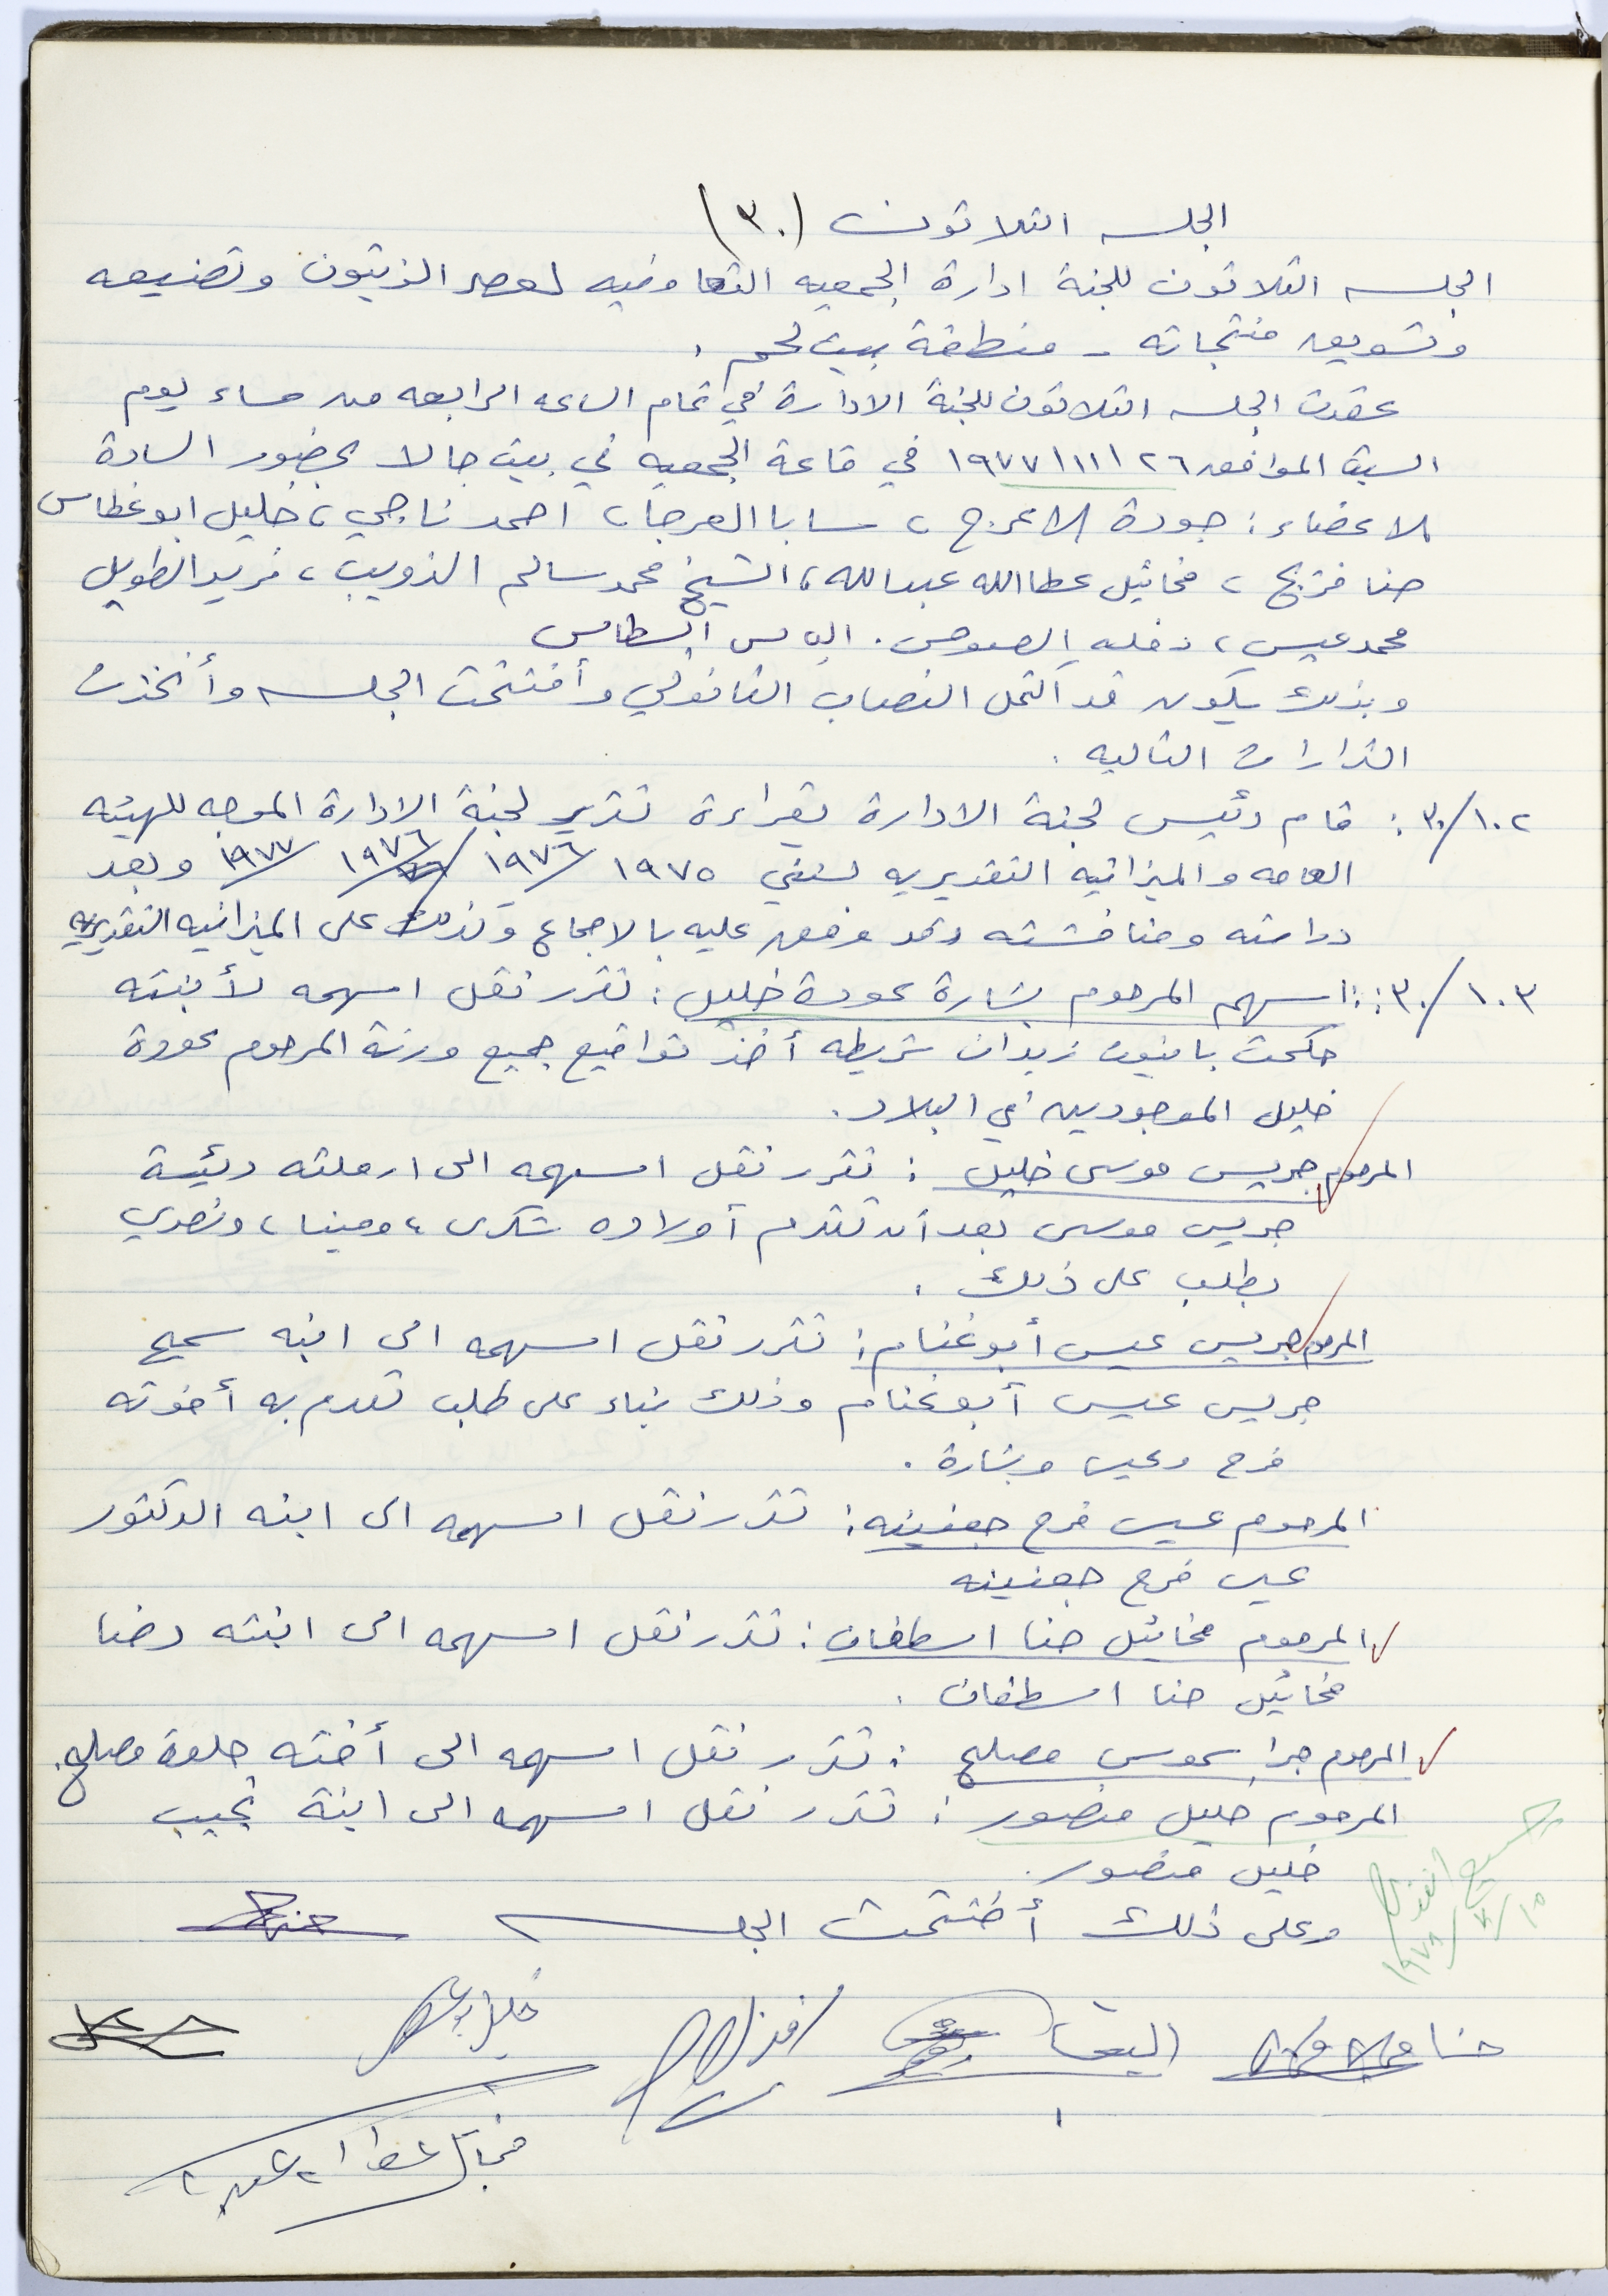 الجلسه الثلاثون (٣٠)
الجلسه الثلاثون للجنة ادارة الجمعيه التعاونيه لعصر الزيتون وتصنيعه
وتسويق منتجاته - منطقة بيت لحم .
عقدت الجلسه الثلاثون للجنة الادارة في تمام الساعه الرابعه من مساء يوم
السبت الموافق ٢٦/١١/١٩٧٧ في قاعة الجمعيه في بيت جالا بحضور السادة
الاعضاء : جودة الاعرج ، سابا العرجا ، احمد ناجي ، خليل ابو غطاس
حنا فريج ، مخائيل عطاالله عبدالله ، الشيخ محمد سالم الذويب ، فريد الطويل
محمد عيسى ، دخله الصوص . الياس البسطامي
وبذلك يكون قد اكتمل النصاب القانوني وأفتتحت الجلسه وأتخذت
القرارات التاليه .
٣٠/١٠٢ : قام رئيس لجنة الادارة بقراءة تقرير لجنة الادارة الموجه للهيئه
العامه والميزانيه التقديريه لسنتي ١٩٧٥/١٩٧٦ ١٩٧٦/١٩٧٧ وبعد
دراسته ومناقشته فقد وفق عليه بالاجماع وكذلك على الميزانيه التقديريه
٣٠/١٠٣ : اسهم المرحوم بشارة عودة خليل : تقرر نقل اسهمه لأبنته
حكمت بانيوت زيدان شريطه أخذ تواقيع جميع ورثة المرحوم عودة
خليل الموجودين في البلاد .
المرحوم جريس موسى خليل : تقرر نقل اسهمه الى ارملته رئيسة
جريس موسى بعد أن تقدم أولاده شكري ، ومينا ، ونصري
بطلب على ذلك .
المرحوم جريس عيسى أبو غنام : تقرر نقل اسهمه الى ابنه سميح
جريس عيسى أبو غنام وذلك بناء على طلب تقدم به أخوته
فرح وعيسى وبشارة .
المرحوم عيسى فرح جعنينه : تقرر نقل اسهمه الى ابنه الدكتور
عيسى فرح جعنينه
المرحوم مخائيل حنا اسطفان : تقرر نقل اسهمه الى ابنته رضا
مخائيل حنا اسطفان .
المرحوم جرا سموس مصلح : تقرر نقل اسهمه الى أخته حلوة مصلح .
المرحوم خليل منصور : تقرر نقل اسهمه الى ابنة نجيب
خليل منصور .
وعلى ذلك أختتمت الجلسه
حنا
الياس
خليل ابو غطاس
مخائيل عطاالله عبدالله